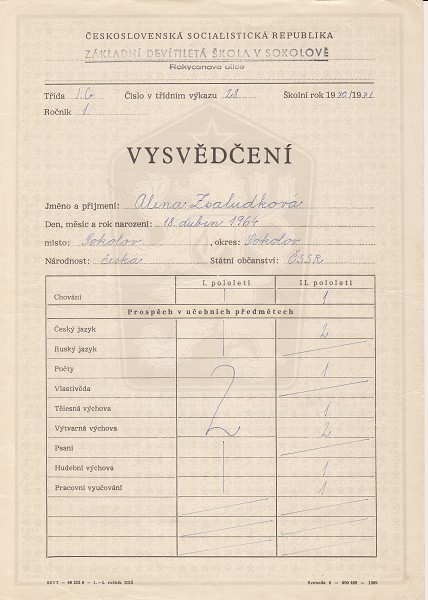 ČESKOSLOVENSKÁ SOCIALISTICKÁ REPUBLIKA
ZÁKLADNÍ DEVÍTILETÁ ŠKOLA V SOKOLOVĚ
Rokycanova ulice
Třída I.C Číslo v třídním výkazu 28 Školní rok 1970/1971
Ročník 1.
VYSVĚDČENÍ
Jméno a příjmení: Alena Zsaludková
Den, měsíc a rok narození: 18. duben 1964
místo: Sokolov, okres: Sokolov
Národnost: česká Státní občanství: ČSSR
I. pololetí II. pololetí
Chování 1
Prospěch v učebních předmětech
Český jazyk 2
Ruský jazyk
Počty 1
Vlastivěda
Tělesná výchova 1
Výtvarná výchova 2 2
Psaní
Hudební výchova 1
Pracovní vyučování 1